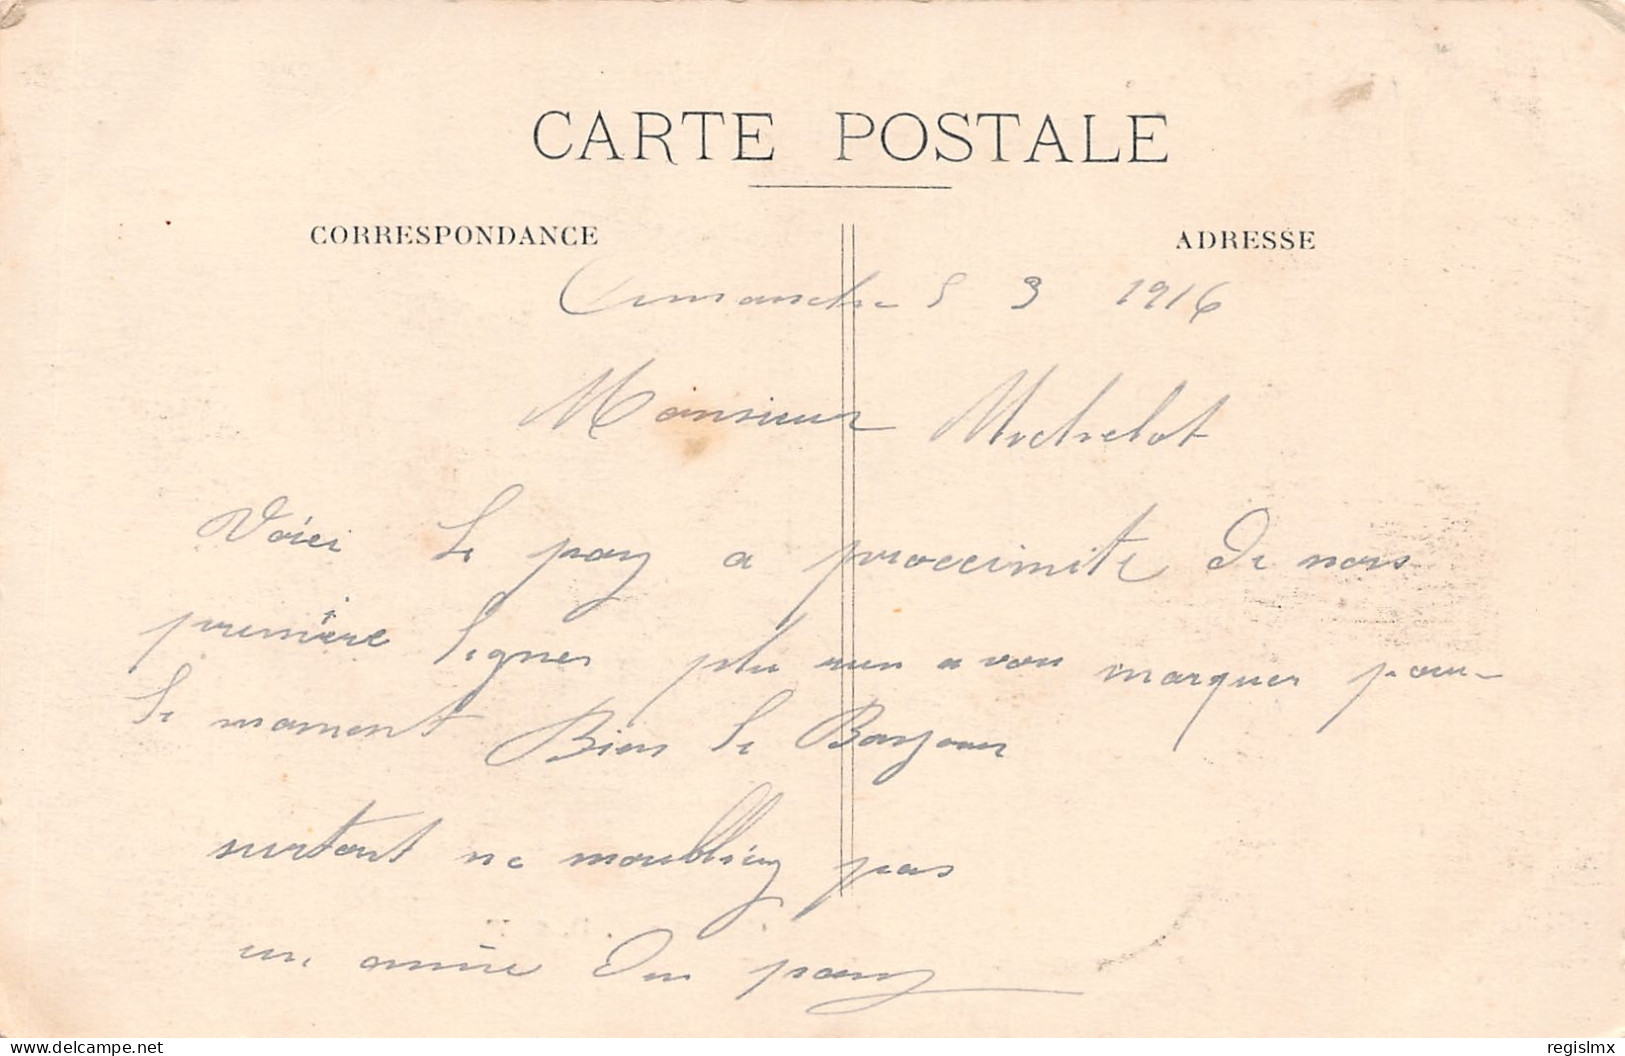 CARTE POSTALE
CORRESPONDANCE
ADRESSE
Dimanche 5 3 1916
Monsieur Michelot
Voici le pay a proccimite de nors
première lignes plu rien a vou marquer pour
le moment Bien le Bonjour
surtout ne moubliey pas
un amie du pay
delcampe.net
regislmx